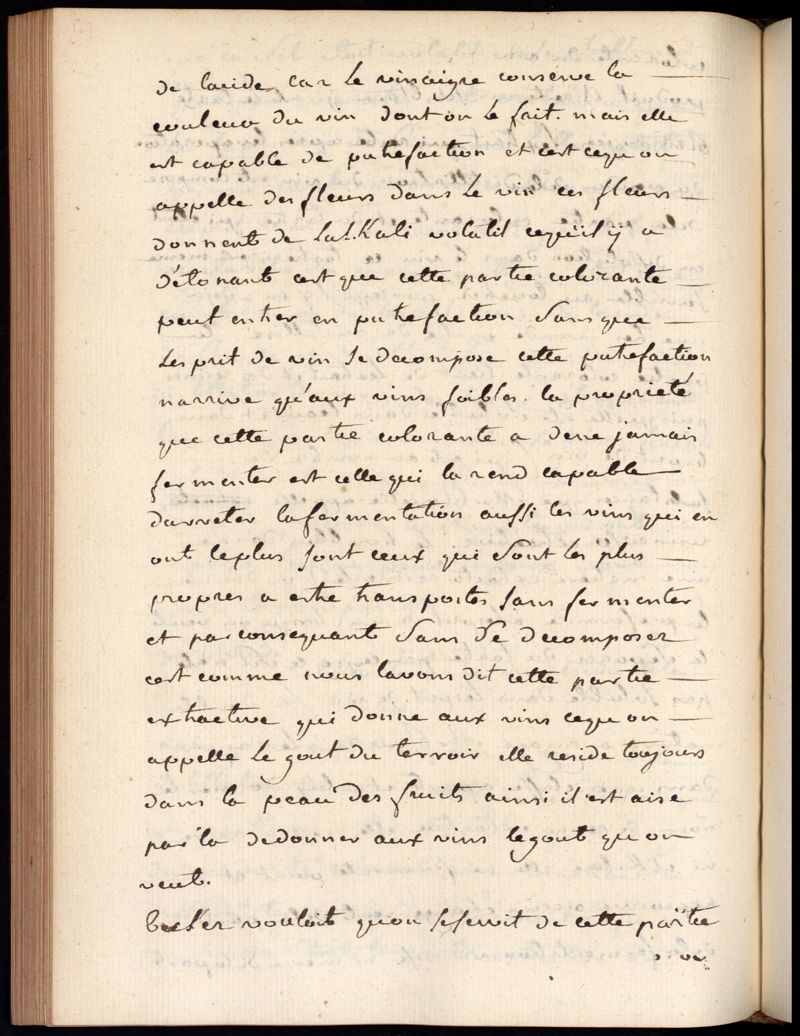 de lacide, car le vinaigre conserve la
couleur du vin dont on le fait. mais elle
est capable de putrefaction et cest cequ on
appelle des fleurs dans le vin ces fleurs
donnent de lalKali volatil cequil ÿ a
d'étonant cest que cette partie colorante
peut entrer en putrefaction sans que
lesprit de vin se decompose cette putrefaction
narrive qu'aux vins foibles. la proprieté
que cette partie colorante a dene jamais
fermenter est celle qui la rend capable
darreter lafermentation aussi les vins qui en
ont leplus sont ceux qui sont les plus
propres a estre transportes sans fermenter
et parconsequant sans se decomposer
cest comme nous lavons dit cette partie
extractive qui donne aux vins cequ on
appelle le gout du terroir elle reside toujours
dans la peau des fruits ainsi il est aise
par la dedonner aux vins legout qu on
veut.
vouloit quon seservit de cette partie